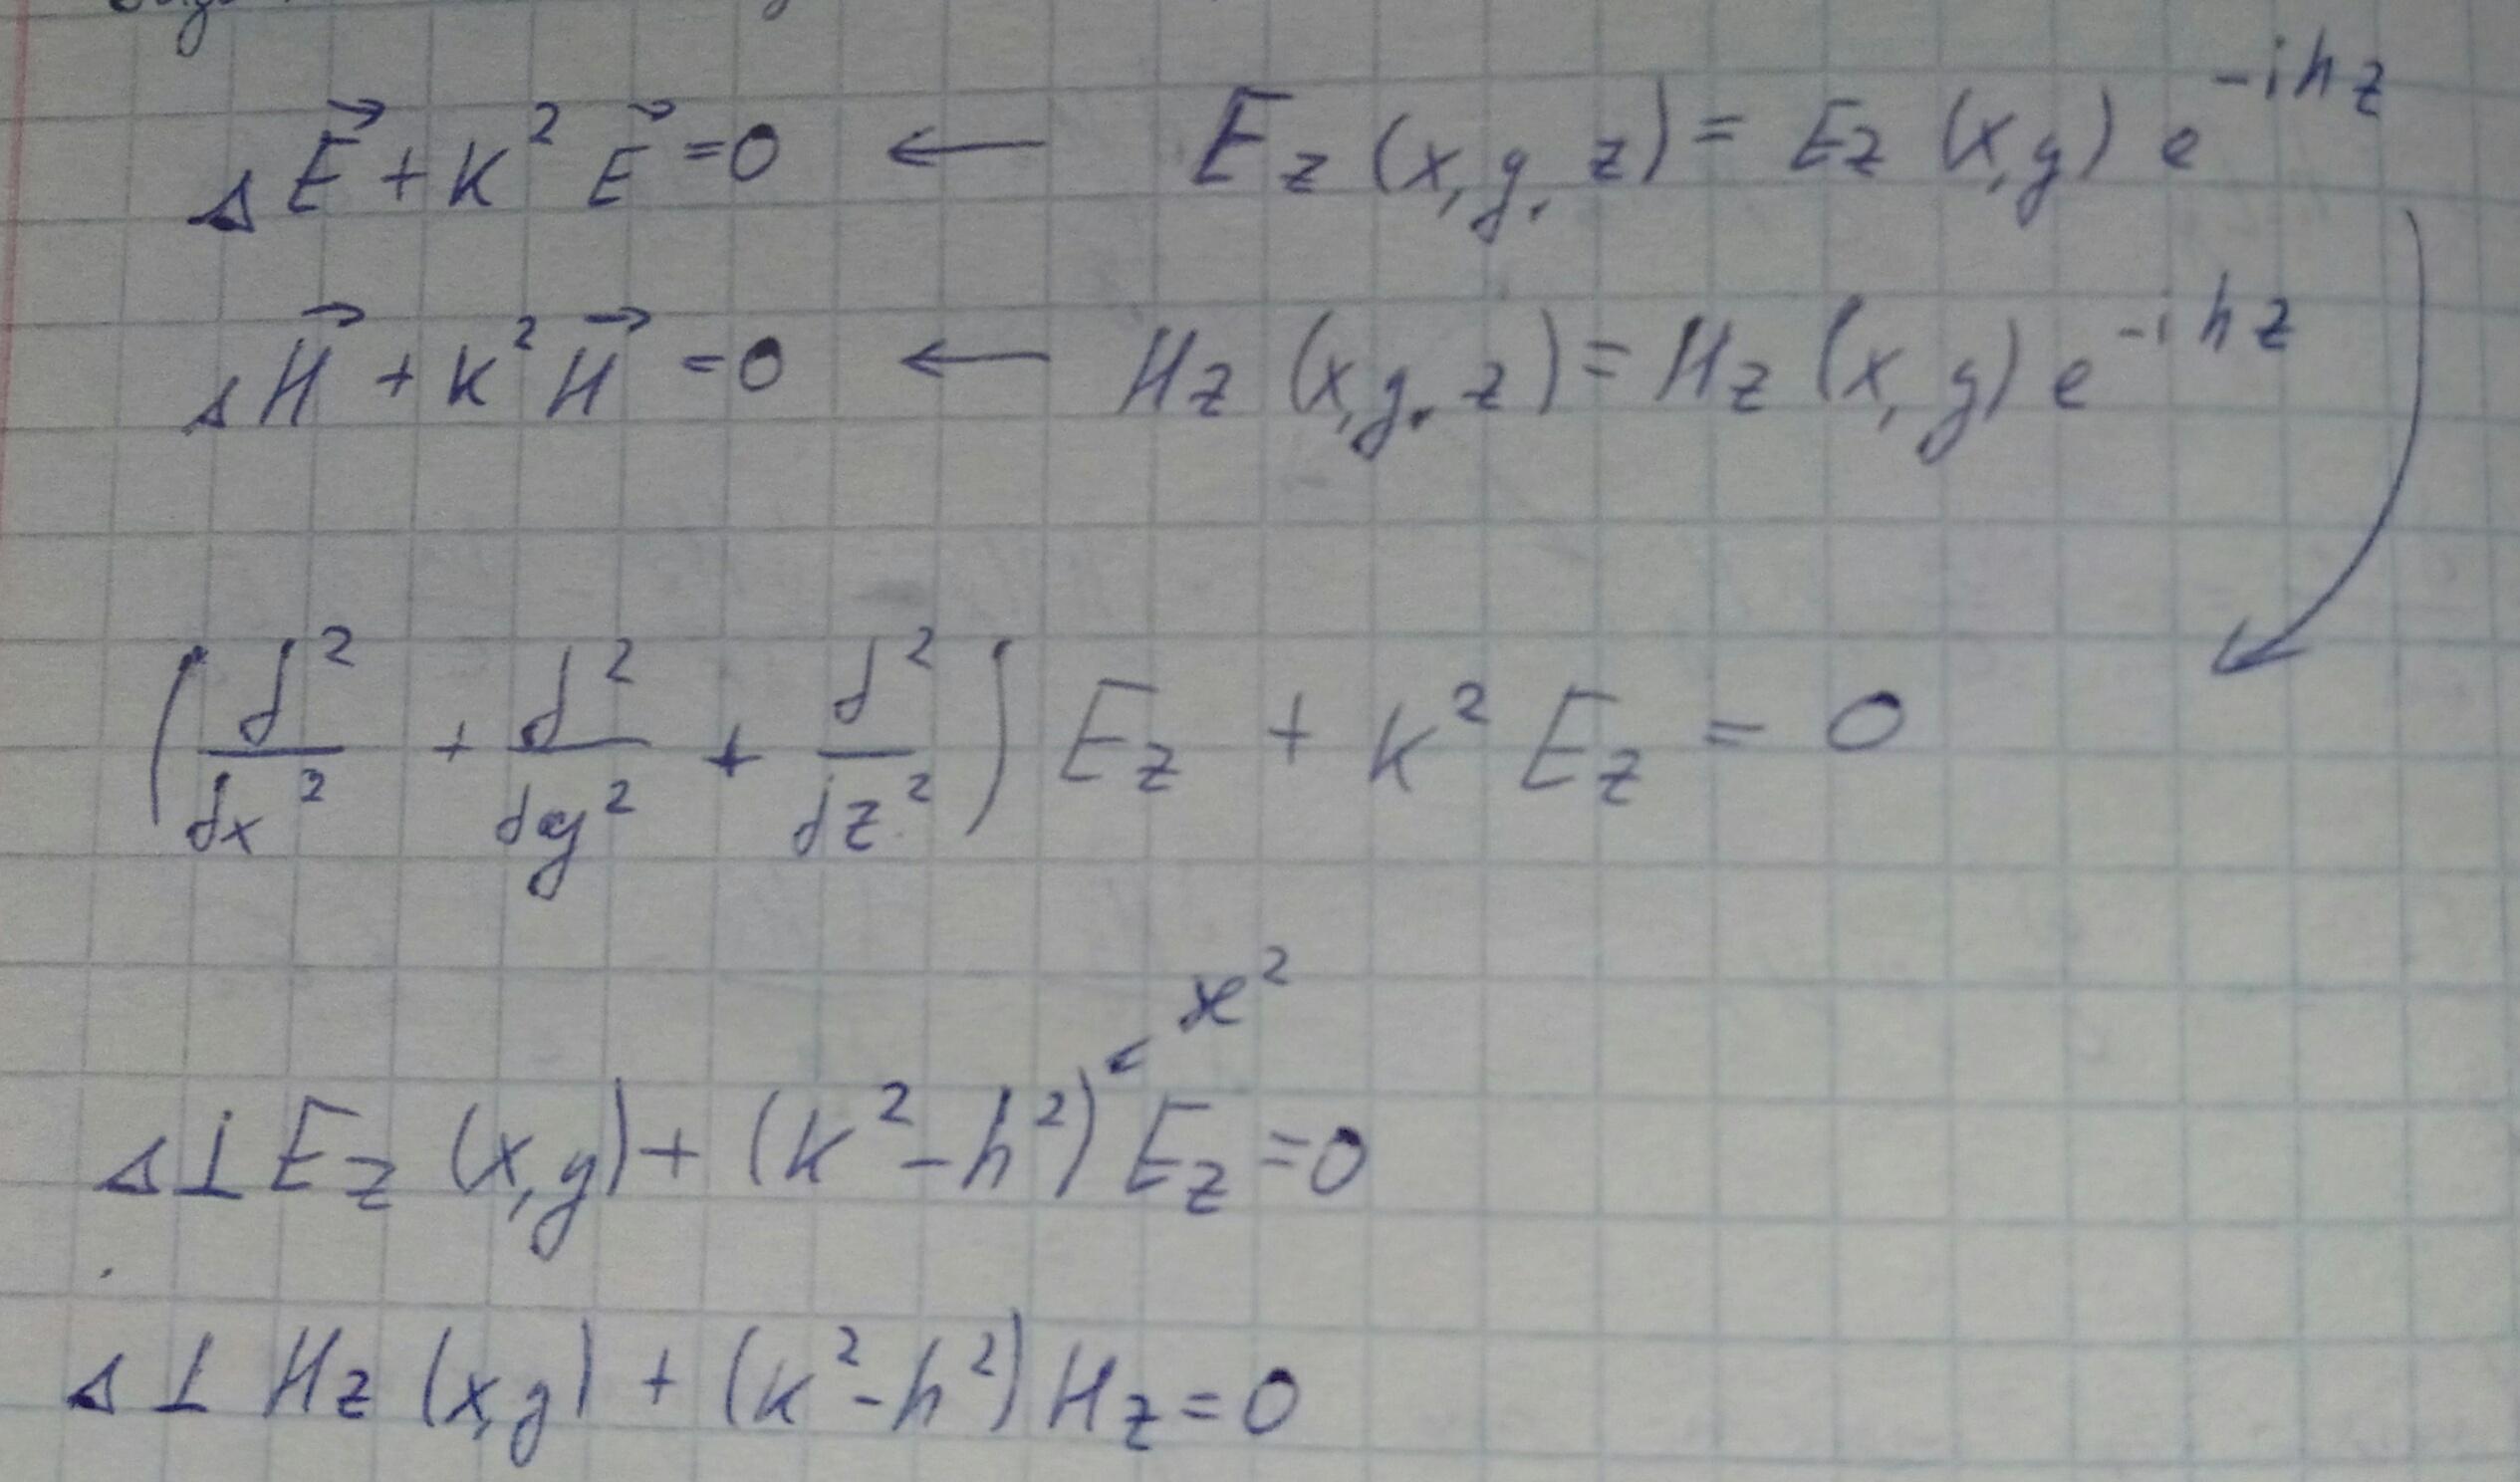 ΔE⃗ + k² E⃗ = 0 ← E_z (x, y, z) = E_z (x, y) e^{-ihz}
ΔH⃗ + k² H⃗ = 0 ← H_z (x, y, z) = H_z (x, y) e^{-ihz}
(d²/dx² + d²/dy² + d²/dz²) E_z + k² E_z = 0
æ²
Δ⊥ E_z (x, y) + (k² - h²) E_z = 0
Δ⊥ H_z (x, y) + (k² - h²) H_z = 0